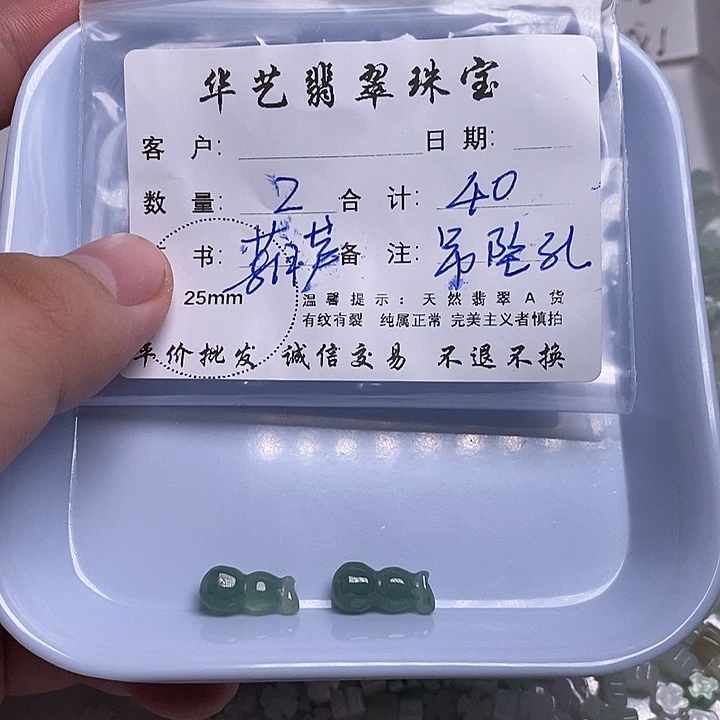 华艺翡翠珠宝
客 户: 日 期:
数 量: 2 合 计: 40
书: 葫芦 备 注: 吊坠孔
25mm
温馨提示:天然翡翠A货
有纹有裂 纯属正常 完美主义者慎拍
平价批发 诚信交易 不退不换